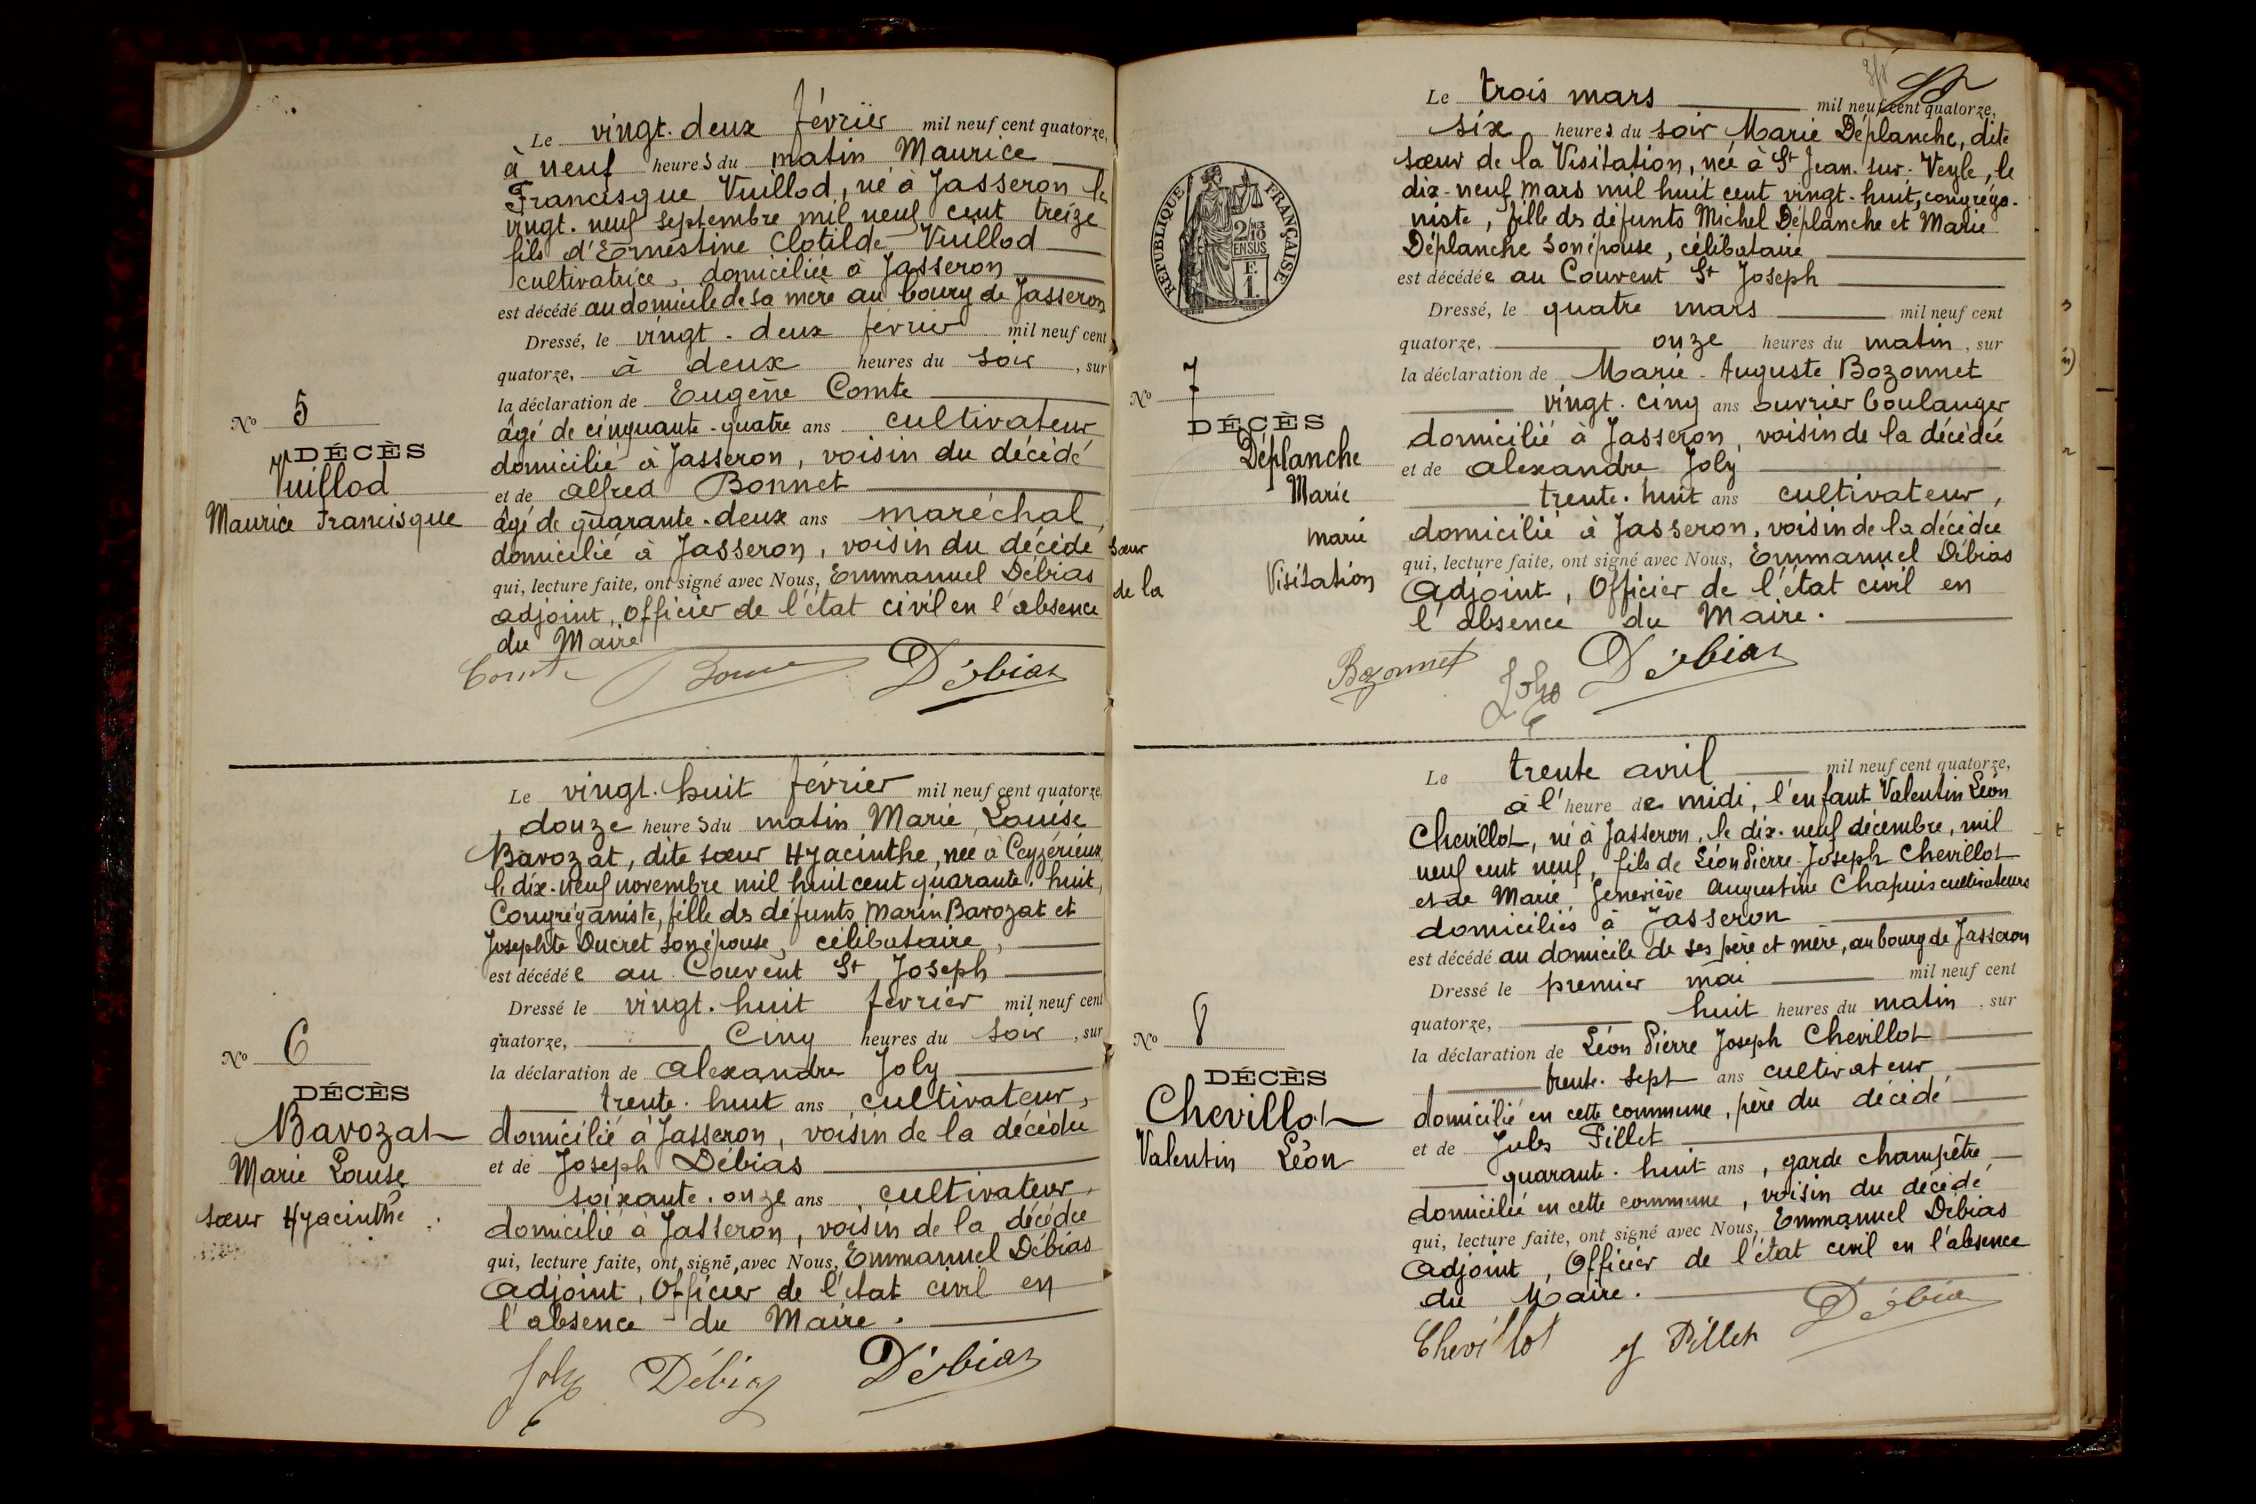 Le vingt. deux février mil neuf cent quatorze,
à neuf heures du matin Maurice
Francisque Vuillod, né à Jasseron le
vingt. neuf septembre mil neuf cent treize
fils d'Ernestine Clotilde Vuillod
cultivatrice, domiciliée à Jasseron
est décédé au domicile de sa mère au bourg de Jasseron
Dressé, le vingt. deux février mil neuf cent
quatorze, à deux heures du soir, sur
la déclaration de Eugène Comte
âgé de cinquante-quatre ans cultivateur
domicilié à Jasseron, voisin du décédé
et de Alfred Bonnet
âgé de quarante-deux ans maréchal,
domicilié à Jasseron, voisin du décédé
qui, lecture faite, ont signé avec Nous, Emmanuel Débias
adjoint, officier de l'état civil en l'absence
du Maire
Comte Débias
No 5
DÉCÈS
Vuillod
Maurice Francisque
Le vingt. huit février mil neuf cent quatorze,
, douze heures du matin Marie, Louise
Bavozat, dite sœur Hyacinthe, née à Ceyzérieux
le dix-neuf novembre mil huit cent quarante. huit,
Congréganiste, fille ds défunts Marin Bavozat et
Josephte Ducret son épouse, célibataire,
est décédée au Couvent St Joseph
Dressé le vingt. huit février mil neuf cent
quatorze, Cinq heures du soir, sur
la déclaration de Alexandre Joly
trente. huit ans cultivateur,
domicilié à Jasseron, voisin de la décédée
et de Joseph Débias
soixante. onze ans cultivateur,
domicilié à Jasseron, voisin de la décédée
qui, lecture faite, ont signé, avec Nous, Emmanuel Débias
Adjoint, Officier de l'état civil en
l'absence du Maire.
Joly Débias Débias
No 6
DÉCÈS
Bavozat
Marie Louise
sœur Hyacinthe
Le trois mars mil neuf cent quatorze,
six heures du soir Marie Déplanche, dite
sœur de la Visitation, née à St Jean. sur. Veyle, le
dix-neuf mars mil huit cent vingt-huit, congréga-
niste, fille ds défunts Michel Déplanche et Marie
Déplanche son épouse, célibataire
est décédée au Couvent St Joseph
Dressé, le quatre mars mil neuf cent
quatorze, onze heures du matin, sur
la déclaration de Marie-Auguste Bozonnet
vingt. cinq ans ouvrier boulanger
domicilié à Jasseron, voisin de la décédée
et de Alexandre Joly
trente. huit ans cultivateur,
domicilié à Jasseron, voisin de la décédée
qui, lecture faite, ont signé avec Nous, Emmanuel Débias
Adjoint, Officier de l'état civil en
l'absence du Maire.
Bozonnet Joly Débias
RÉPUBLIQUE FRANÇAISE
2/10 EN SUS
F.
1.
No 7
DÉCÈS
Déplanche
Marie
sœur marie
de la Visitation
Le trente avril mil neuf cent quatorze,
à l'heure de midi, l'enfant Valentin Léon
Chevillot, né à Jasseron, le dix-neuf décembre, mil
neuf cent neuf, fils de Léon Pierre-Joseph Chevillot
et de Marie, Geneviève Augustine Chapuis cultivateurs
domiciliés à Jasseron
est décédé au domicile de ses père et mère, au bourg de Jasseron
Dressé le premier mai mil neuf cent
quatorze, huit heures du matin, sur
la déclaration de Léon Pierre Joseph Chevillot
trente. sept ans cultivateur
domicilié en cette commune, père du décédé
et de Jules Pillet
quarante. huit ans, garde champêtre,
domicilié en cette commune, voisin du décédé
qui, lecture faite, ont signé avec Nous, Emmanuel Débias
Adjoint, Officier de l'état civil en l'absence
du Maire.
Chevillot J Pillet Débias
No 8
DÉCÈS
Chevillot
Valentin Léon